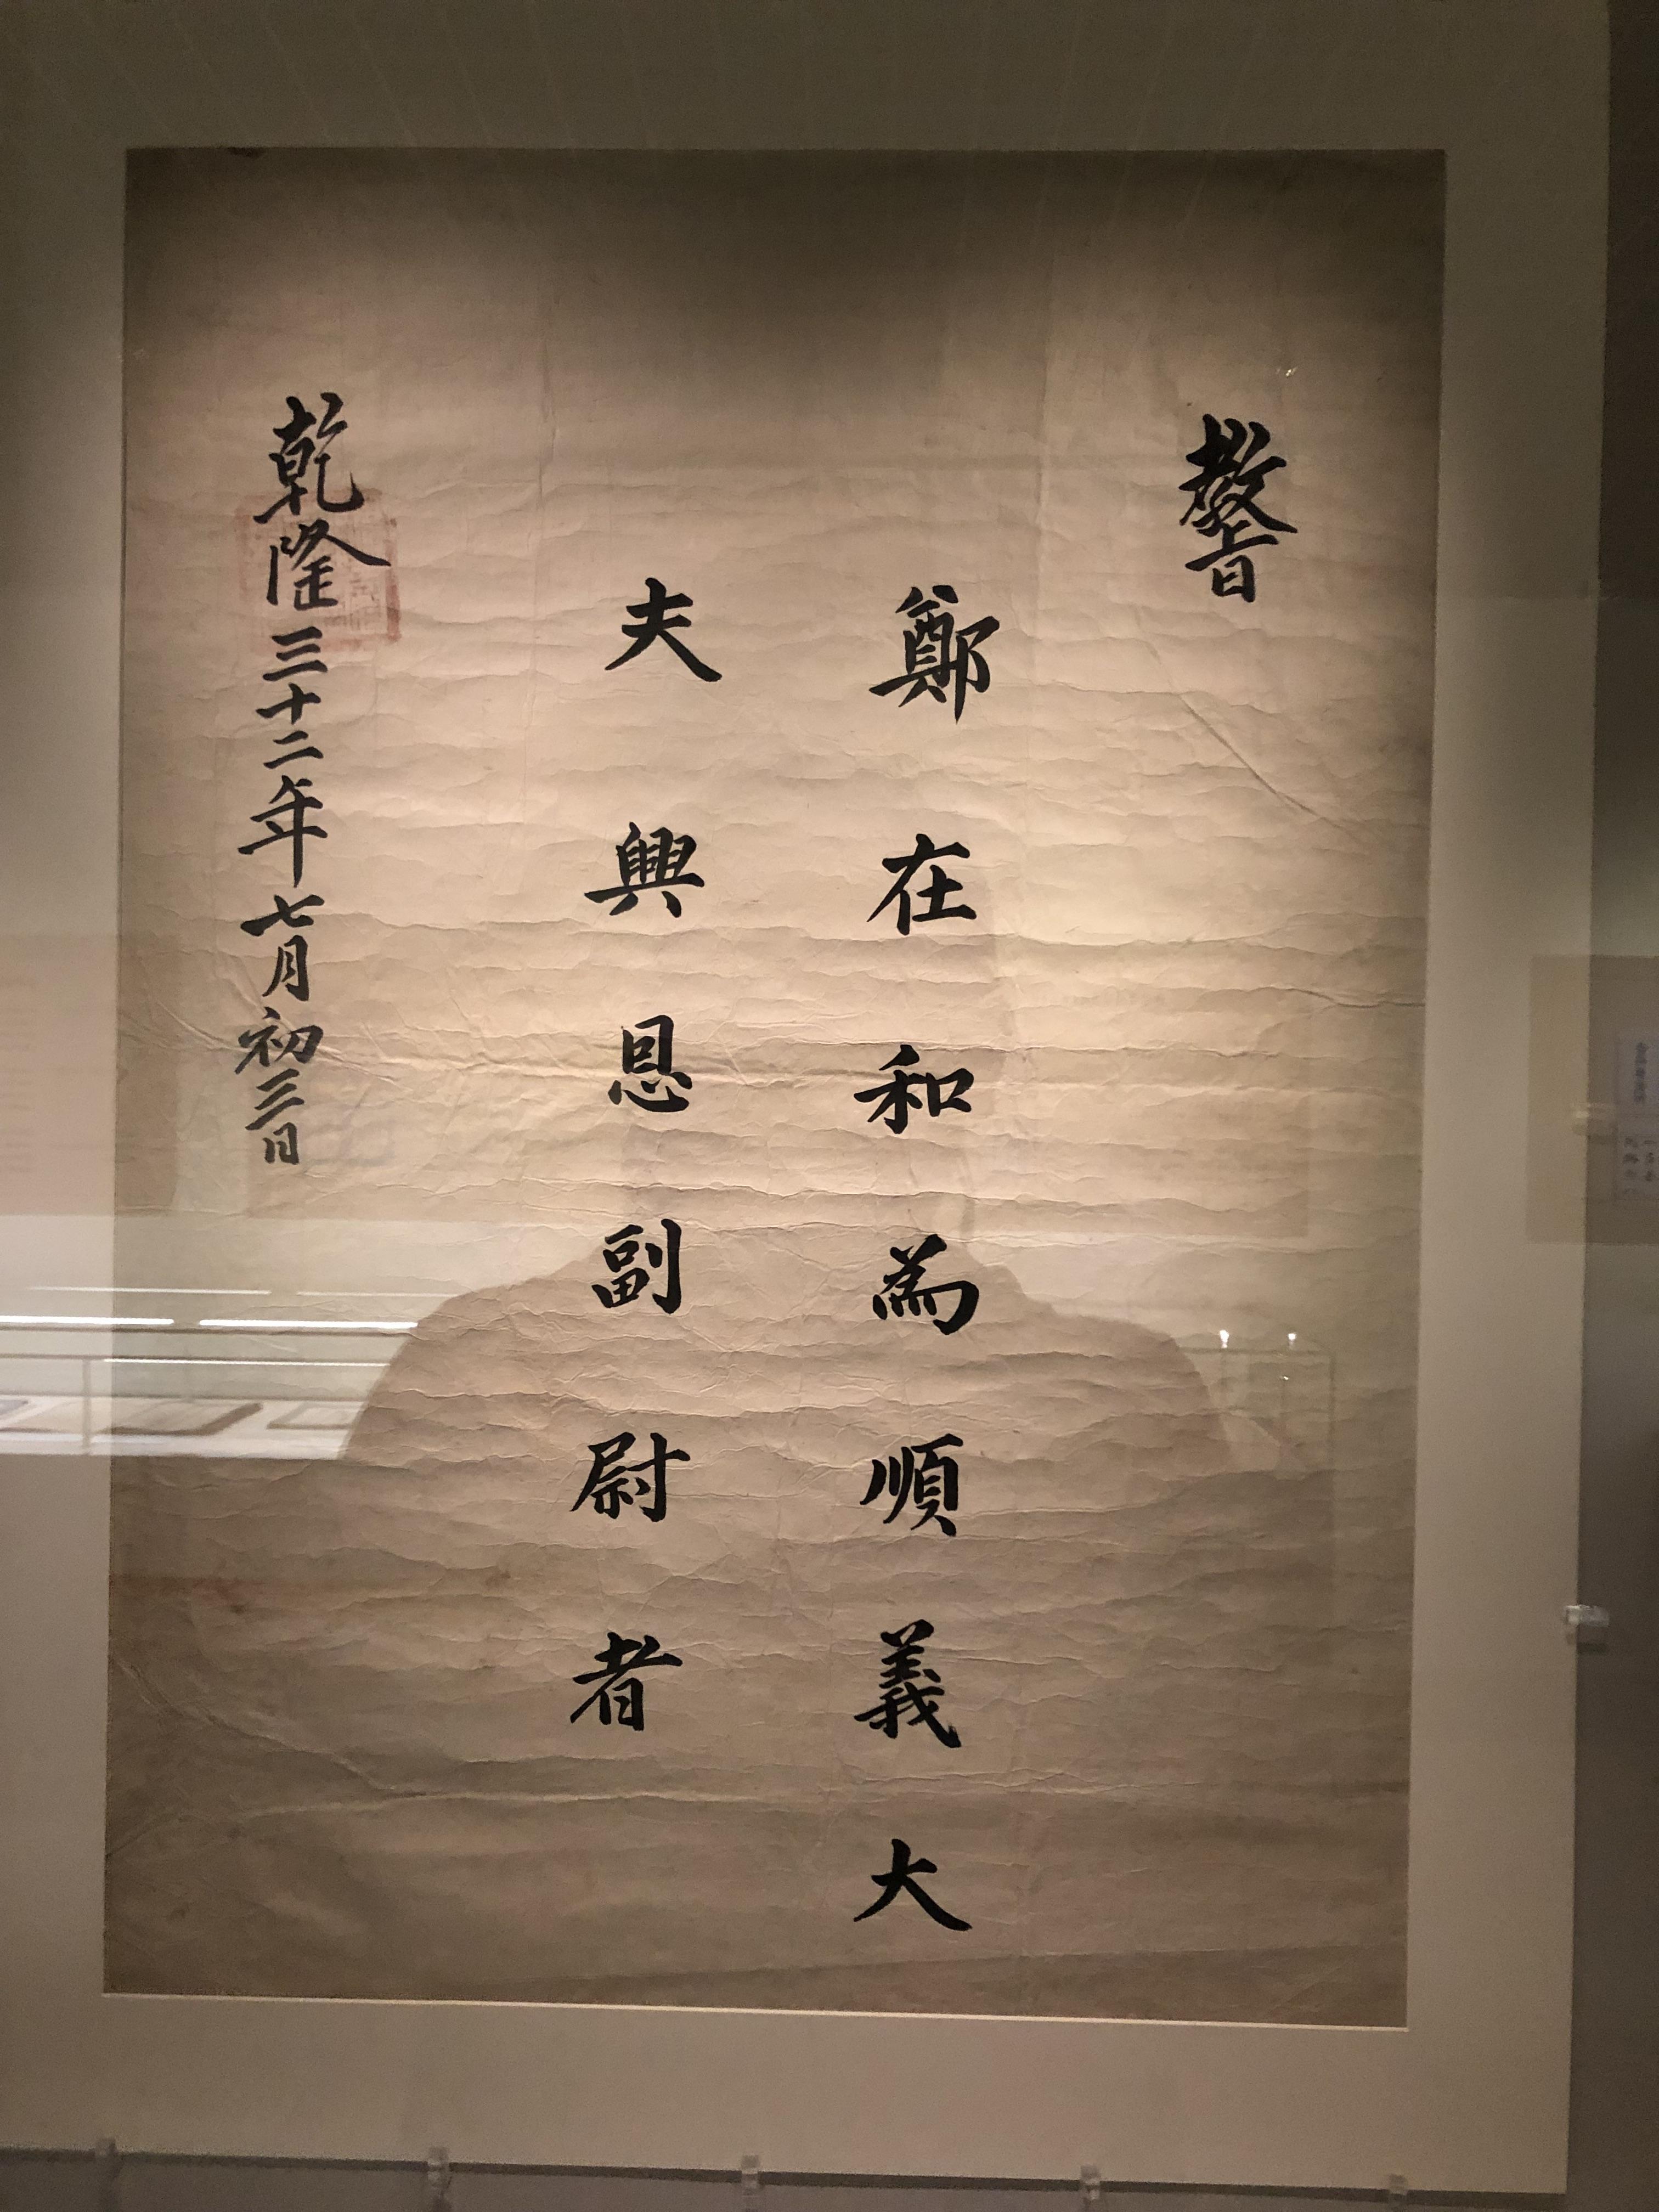 敎旨
鄭在和為順義大
夫興恩副尉者
乾隆三十二年七月初三日